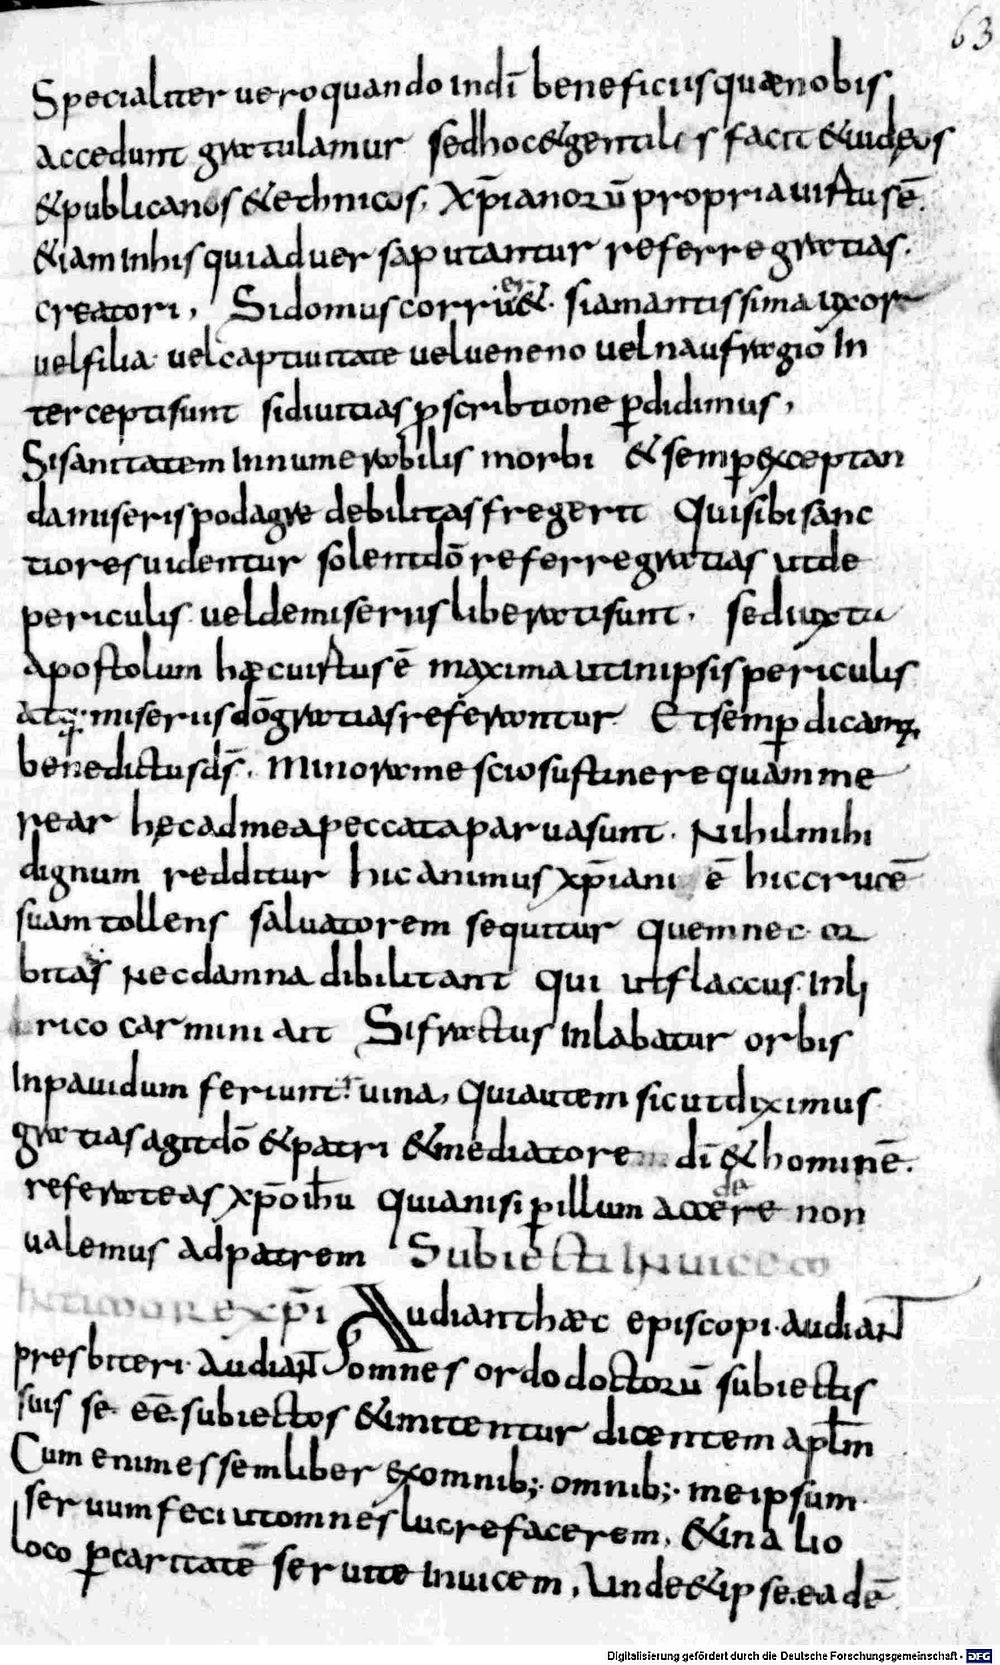 63
Specialiter uero quando in dī beneficiis quæ nobis
accedunt gratulamur sed hoc & gentiles facit & iudęos
& publicanos & ethnicos, xp̄ianorū propria uirtus ē.
& iam in his qui aduersa putantur referre gratias.
creatori, Si domus corruer&. si amantissima uxor
uel filia. uel captiuitate uel ueneno uel naufragiō In
tercepti sunt si diuitias ꝓscribtione ꝑdidimus,
Si sanitatem innumerabilis morbi & semꝑ exceptan
da miseris podagre debilitas fregerit Qui sibi sanc
tiores uidentur solent dō referre gratias ut de
periculis uel de miseriis liberati sunt. sed iuxta
apostolum hæc uirtus ē maxima ut in ipsis periculis
atq; miseriis dō gratias referantur Et semꝑ dicamꝰ,
benedictus ds̄. Minora me scio sustinere quam me
rear hęc ad mea peccata parua sunt. Nihil mihi
dignum redditur hic animus xp̄iani ē hic crucē
suam tollens saluatorem sequitur quem nec or
bitas Nec damna dibilitant qui ut flaccus. In li
brico carmini ait Si fractus inlabatur orbis
Inpauidum feriunt ruina, Qui autem sicut diximus
gratias agit dō & patri & mediatore dī & hominē.
referat eas xp̄o ih̄u quia nisi ꝑ illum accedere non
ualemus ad patrem Subiecti Inuicem
In timore xp̄i Audiant hæc episcopi. audiant
presbiteri. Audiant omnes ordo doctorū subiectis
suis se eē. subiectos & imitentur dicentem apl̄m
Cum enim essem liber ex omnib;. omnib;. me ipsum
seruum feci ut omnes lucrefacerem, & in alio
loco ꝑ caritatē seruite Inuicem, Unde & ipse. eadē
Digitalisierung gefördert durch die Deutsche Forschungsgemeinschaft - DFG